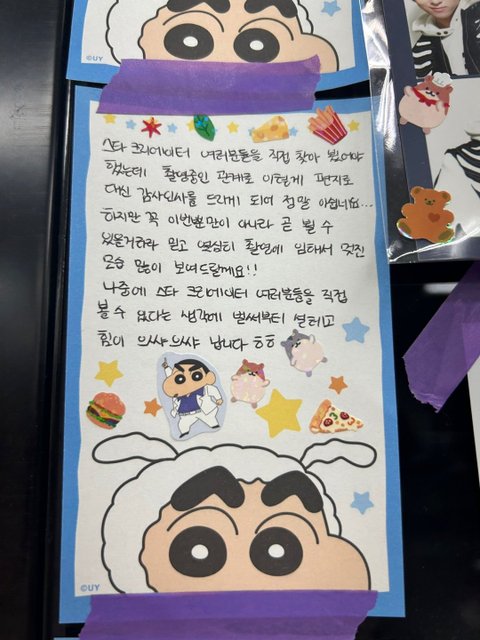 ©UY
스타 크리에이터 여러분들을 직접 찾아 뵀어야
했는데 촬영중인 관계로 이렇게 편지로
대신 감사인사를 드리게 되어 정말 아쉽네요...
하지만 꼭 이번뿐만이 아니라 곧 뵐 수
있을거라 믿고 열심히 촬영에 임해서 멋진
모습 많이 보여드릴게요!!
나중에 스타 크리에이터 여러분들을 직접
볼 수 있다는 생각에 벌써부터 설레고
힘이 으쌰으쌰 납니다 ㅎㅎ
©UY